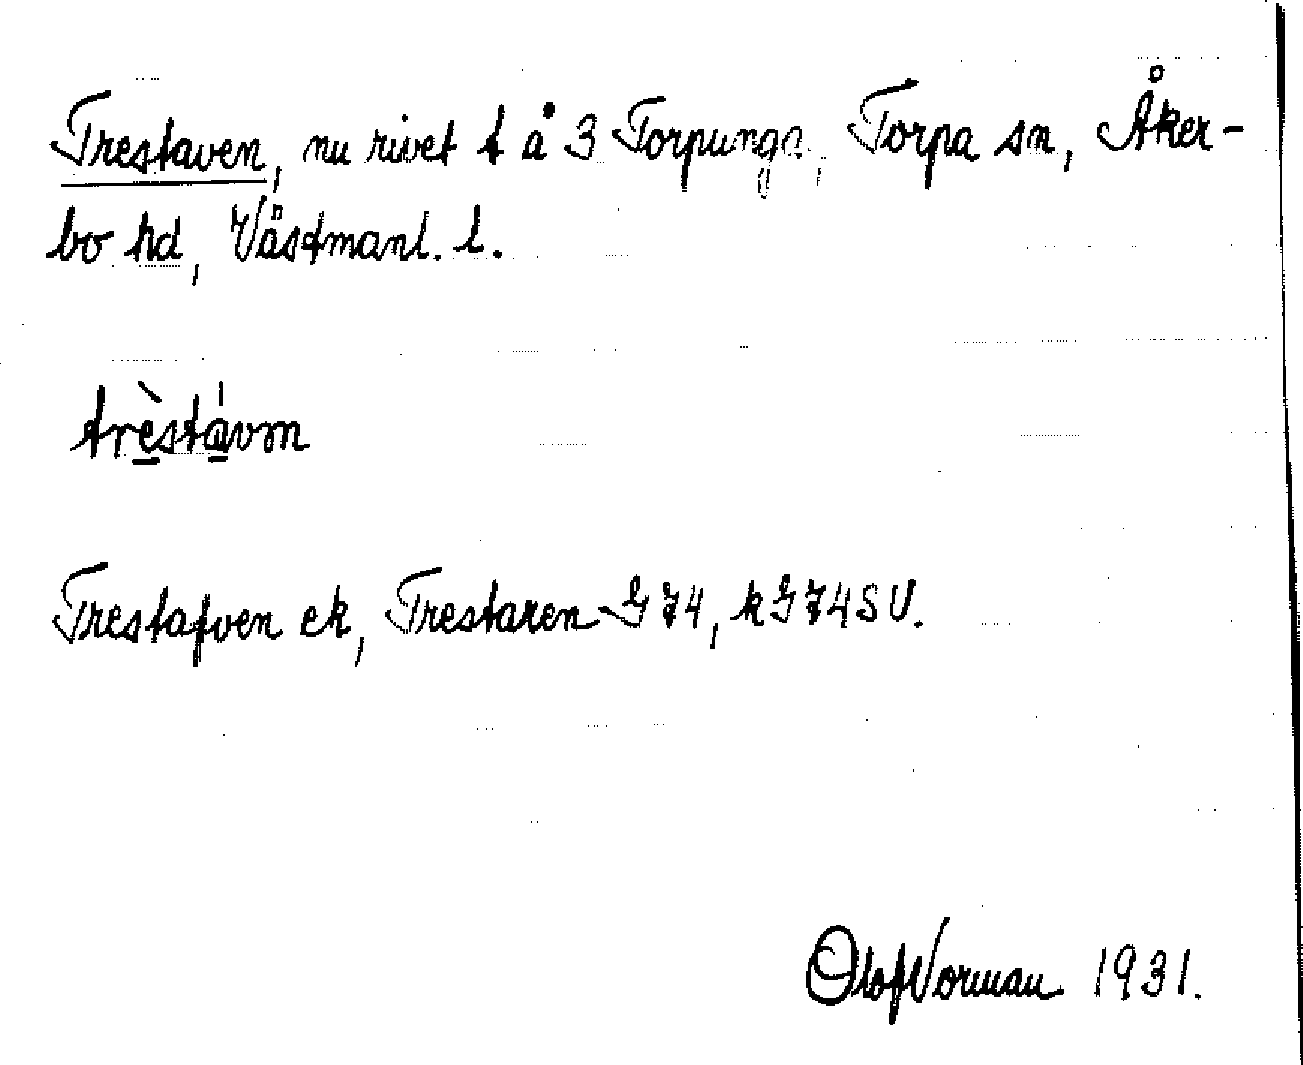 Trestaven, nu rivet t å 3 Torpunga, Torpa sn, Åker-
bo hd, Västmanl. l.
trèstávm
Trestafven ek, Trestaren G74, kG74SV.
Olof Norman 1931.